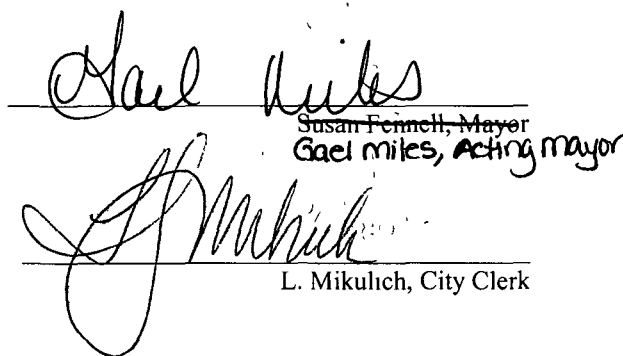 Gael Miles
Susan Fennell, Mayor
Gael Miles, Acting Mayor
L. Mikulich
L. Mikulich, City Clerk